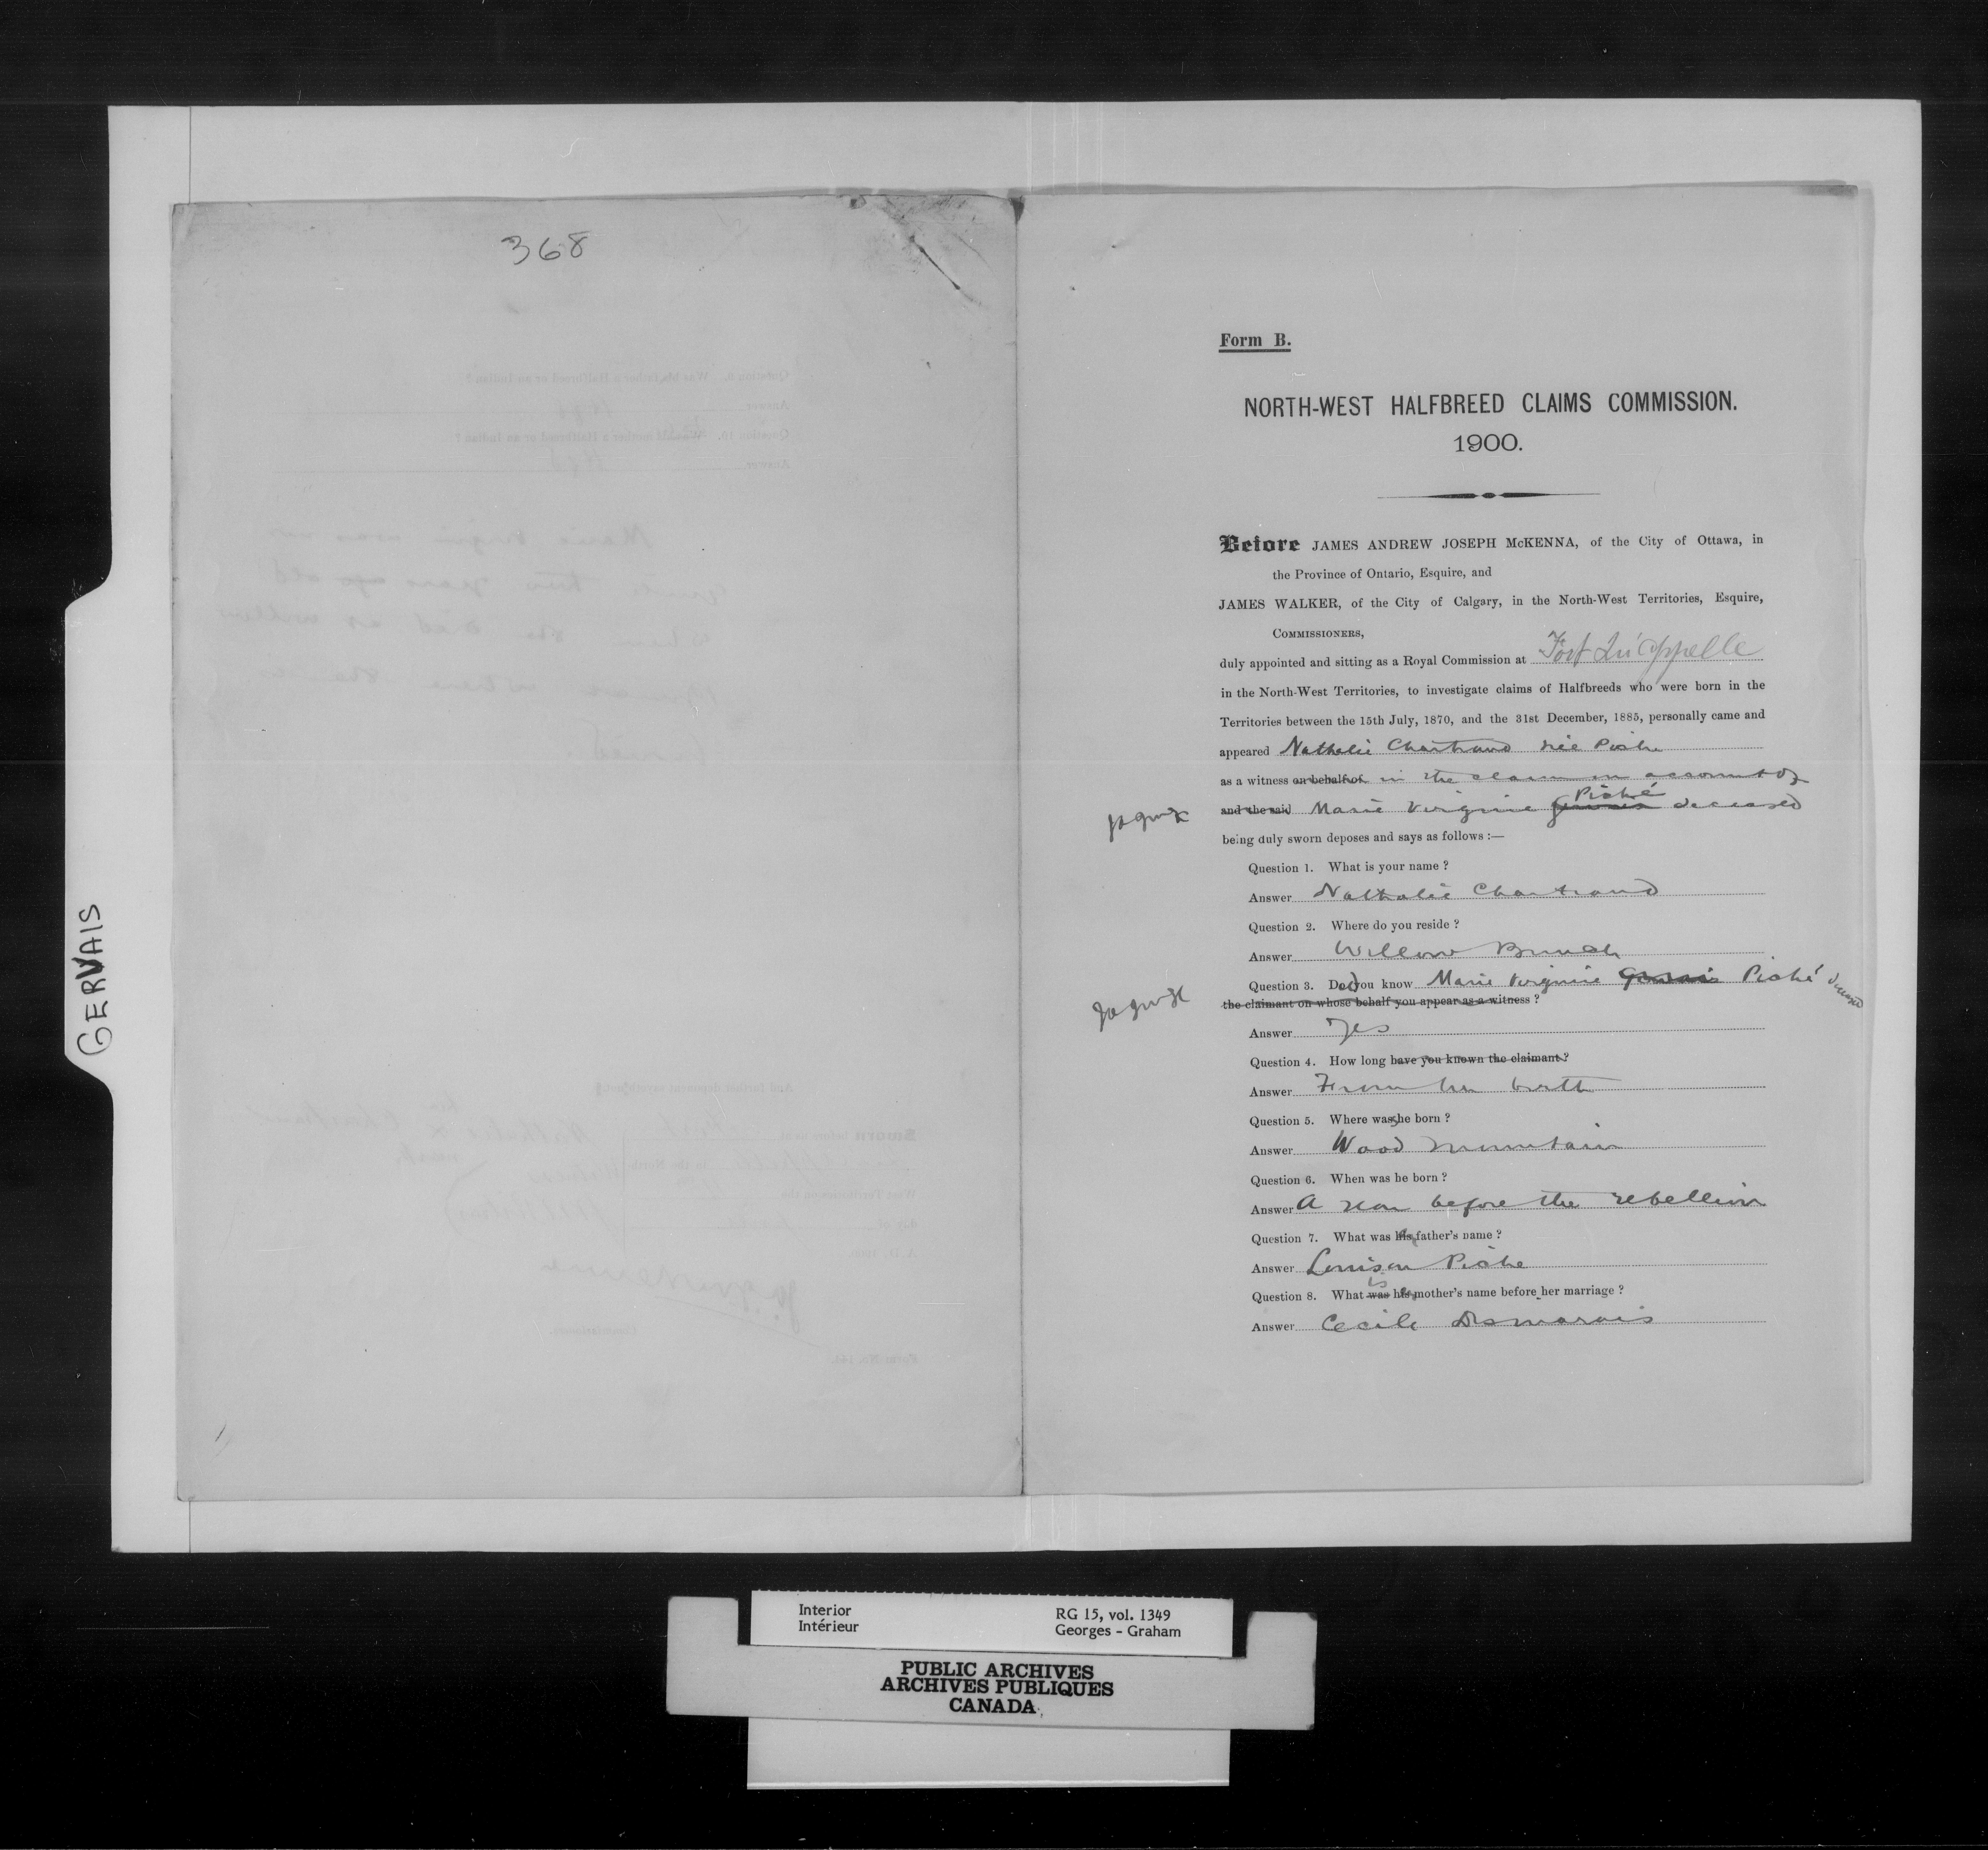 368
GERVAIS
Form B.
NORTH-WEST HALFBREED CLAIMS COMMISSION.
1900.
Before JAMES ANDREW JOSEPH McKENNA, of the City of Ottawa, in
the Province of Ontario, Esquire, and
JAMES WALKER, of the City of Calgary, in the North-West Territories, Esquire,
COMMISSIONERS,
duly appointed and sitting as a Royal Commission at Fort Qu'appelle
in the North-West Territories, to investigate claims of Halfbreeds who were born in the
Territories between the 15th July, 1870, and the 31st December, 1885, personally came and
appeared Nathalie Chartrand née Piché
as a witness on behalf of in the claim on account of
and the said Marie Virginie Gervais Piché deceased
being duly sworn deposes and says as follows :—
Question 1. What is your name ?
Answer Nathalie Chartrand
Question 2. Where do you reside ?
Answer Willow Bunch
Question 3. Did you know Marie Virginie Gervais Piché deceased
the claimant on whose behalf you appear as a witness ?
Answer Yes
Question 4. How long have you known the claimant ?
Answer From her birth
Question 5. Where was she born ?
Answer Wood Mountain
Question 6. When was he born ?
Answer A year before the rebellion
Question 7. What was his father's name ?
Answer Louison Piche
Question 8. What was is his mother's name before her marriage ?
Answer Cecile Desmarais
Interior
Intérieur
RG 15, vol. 1349
Georges - Graham
PUBLIC ARCHIVES
ARCHIVES PUBLIQUES
CANADA